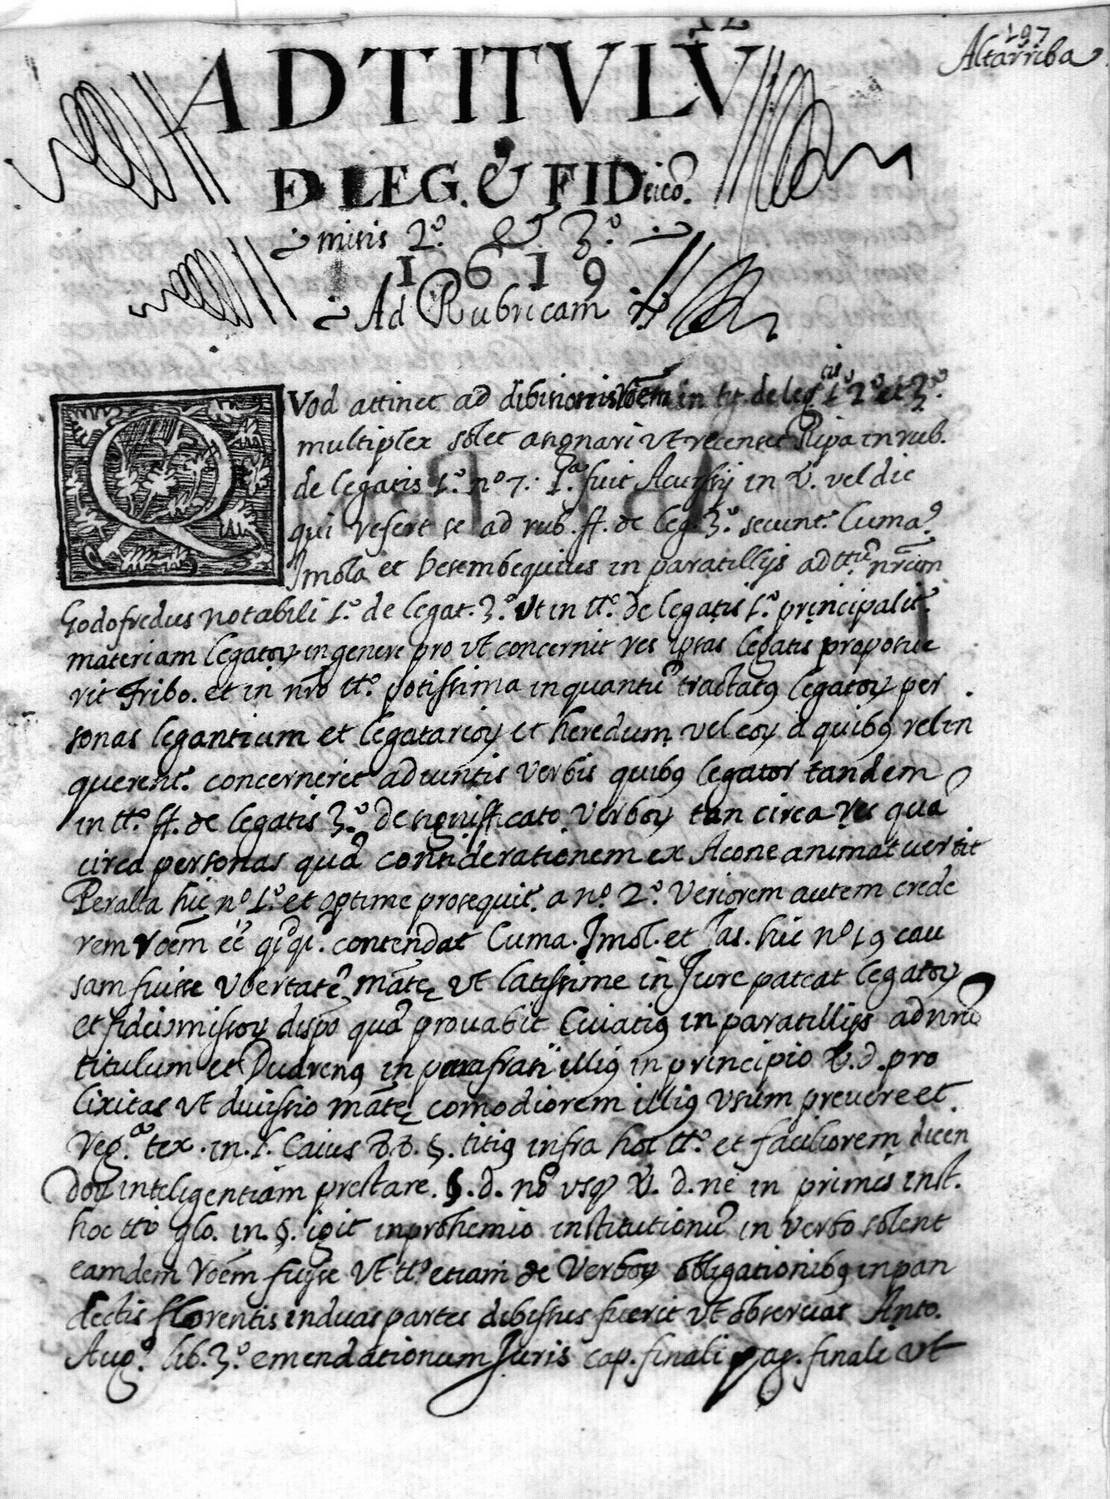 197
Altarriba
AD TITVLV̄
D LEG. & FIDeico.
misis 2.º & 3.º
1619
Ad Rubricam
QVod attinet ad in tit. de leg.
multiplex solet asignari vt recenset Ripa in rub.
de legatis 1.º nº 7. 1.ª fuit Acursij in v. vel dic
qui refert se ad rub. ff. de leg. 3.º secunt. Cuma.
Imola et in paratillijs ad ttū nr̄um
Godofredus notabili 1.º de legat. 3.º vt in ttº. de legatis 1.º principalit.
materiam legatoꝝ in genere pro vt concernit res ipsas legatis proposue
rit Tribo. et in nr̄o ttº. potissima in quantū tractatꝰ legatoꝝ per
sonas legantium et legatarioꝝ et heredum vel eoꝝ a quibꝰ relin
querent. concerneret aduntis verbis quibꝰ legator tandem
in ttº. ff. de legatis 3.º de significato verboꝝ tan circa res quā
circa personas quā considerationem ex Acone animaduertit
Peralta hic nº 1.º et optime prosequit. a nº. 2.º veriorem autem crede
rem roēm eē contendat Cuma. Imol. et Jas. hic nº 19 cau
sam fuisse vbertatē mātē vt latissime in Jure pateat legatoꝝ
et fideimissoꝝ dispo quā provabit Cuiatiꝰ in paratillijs ad nrū
titulum et Duarenꝰ in illiꝰ in principio v. d. pro
lixitas vt divissio mātē comodiorem illiꝰ vsum prevere et
veg.ª tex. in. l. Caius §. titiꝰ infra hoc ttº. et faciliorem dicen
doꝝ inteligentiam prestare. §. d. nō vsqꝫ v. d. ne in primis inst.
hoc tto glo. in. §. igit in prohemio institutionū in verbo solent
eamdem roēm fuisse vt ttº etiam de verboꝝ obligationibꝰ in pan
dectis florentis in duas partes dibissus fuerit vt observat Anto.
Aug.º lib. 3.º emendationum Juris cap. finali pag. finali vt